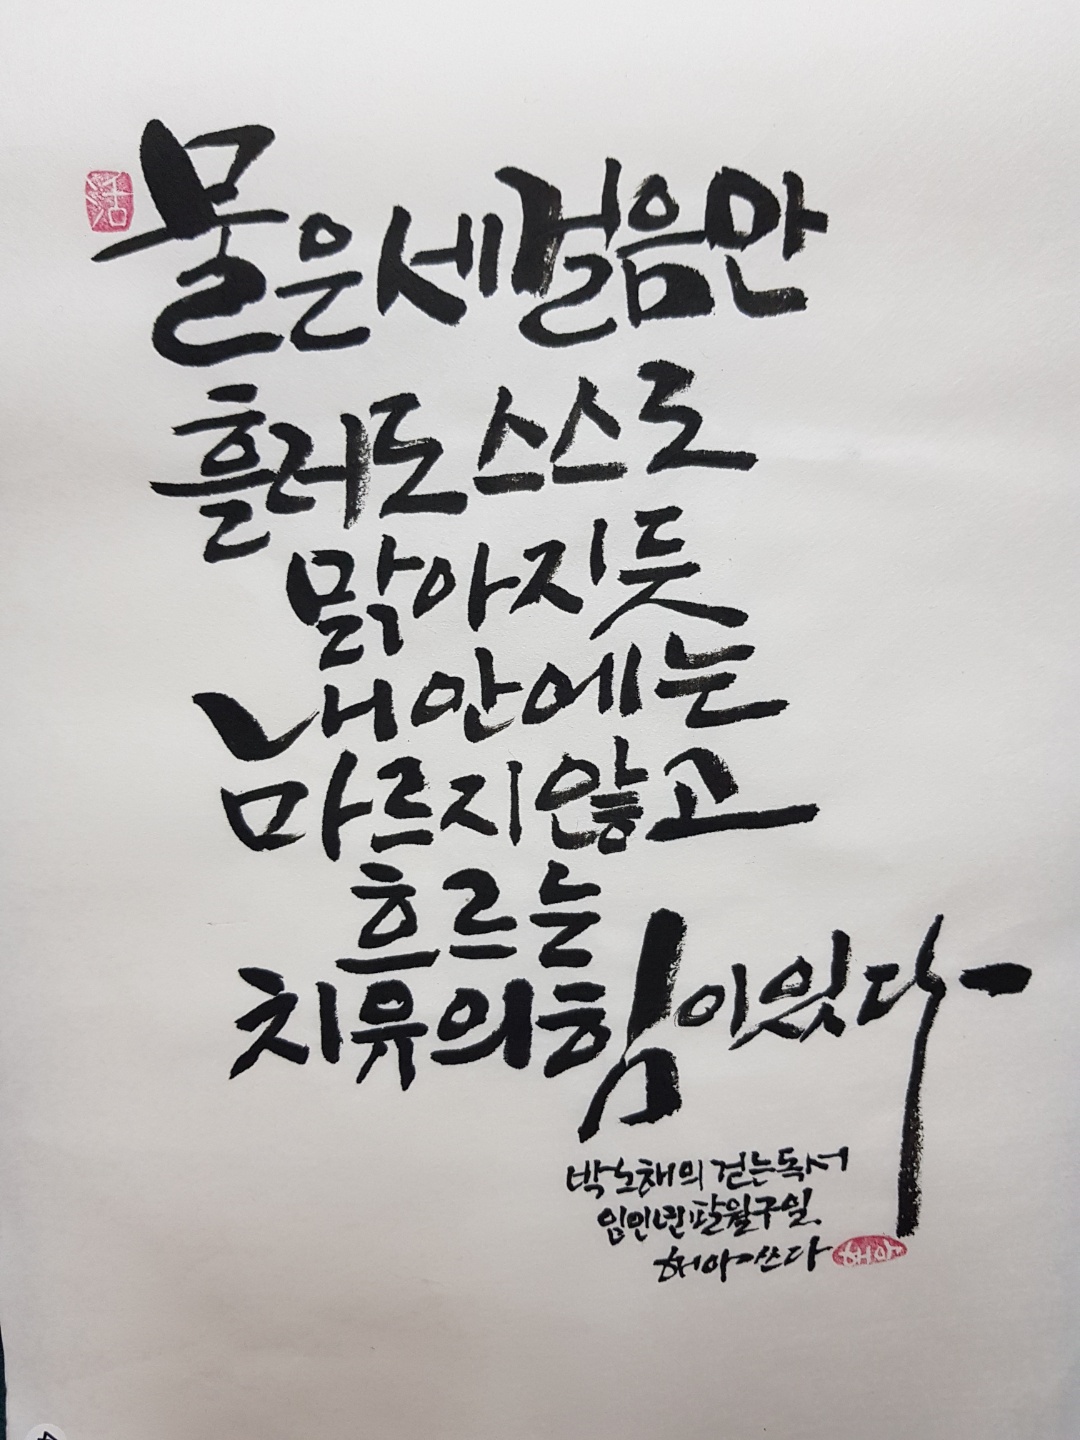 活
물은 세 걸음만
흘러도 스스로
맑아지듯
내 안에는
마르지 않고
흐르는
치유의 힘이 있다
박노해의 걷는독서
임인년 팔월구일
해아 쓰다
해아